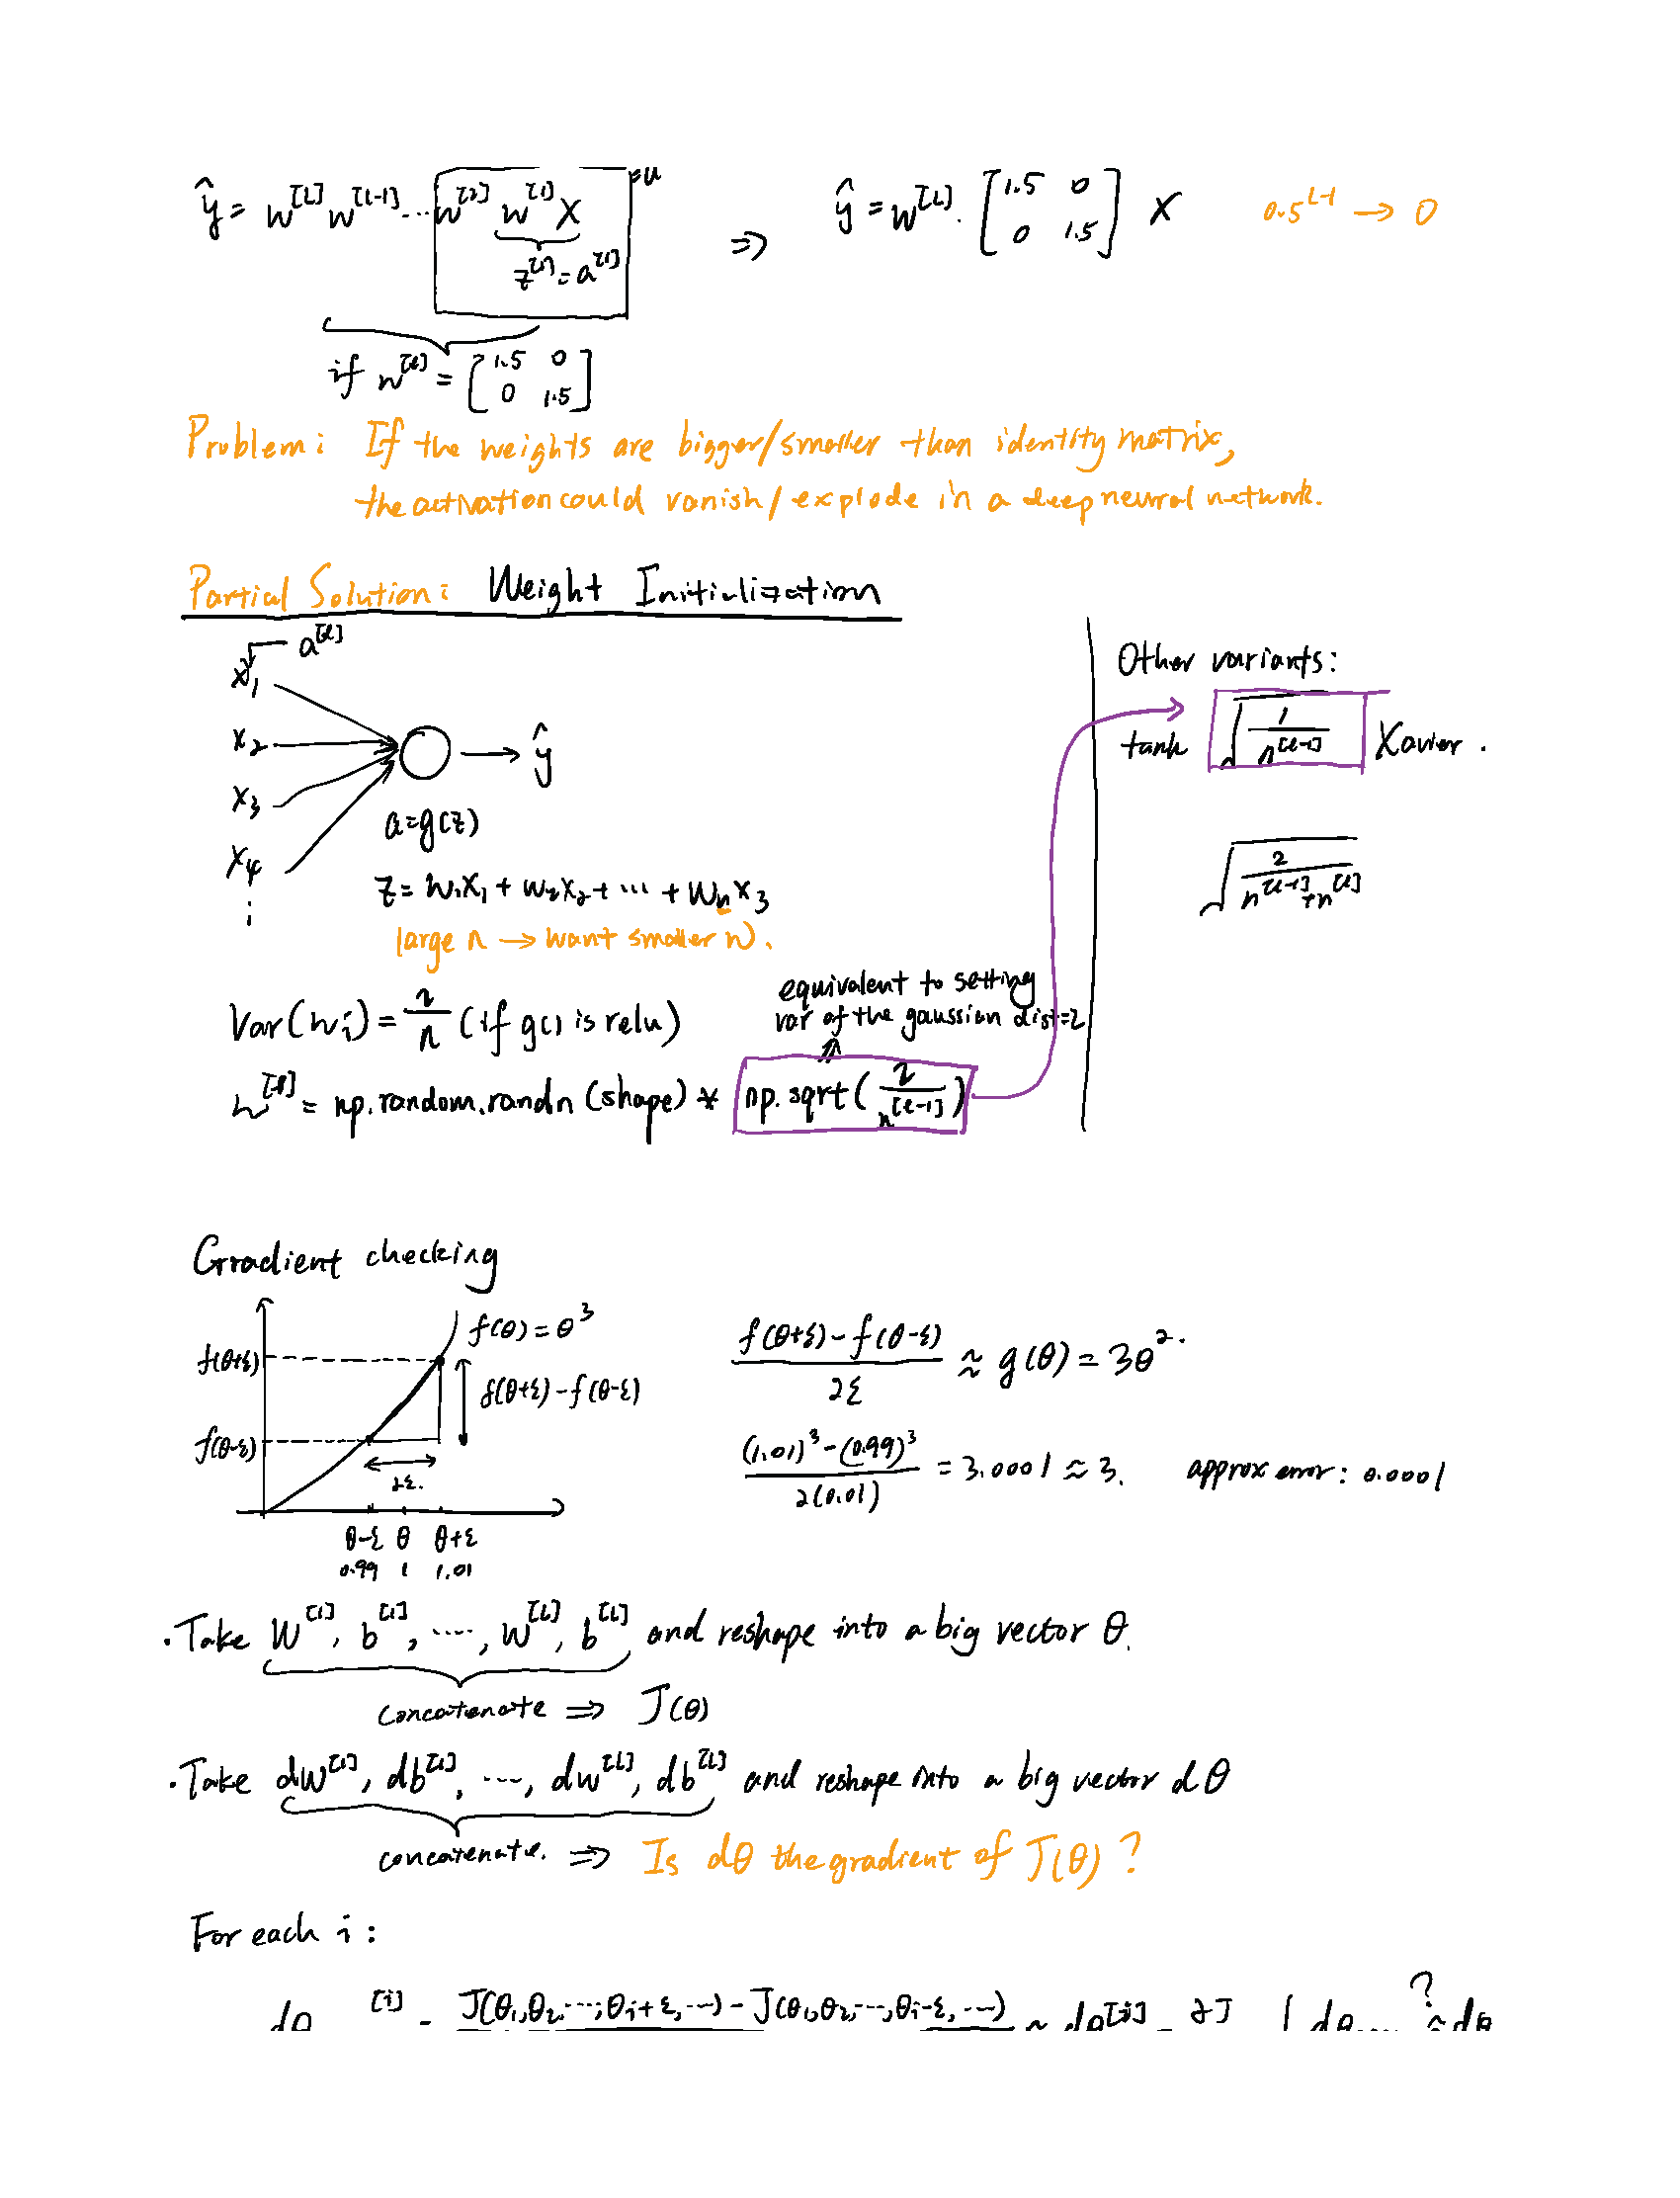 ŷ = w^[L] w^[L-1] ... w^[2] w^[1] X ⇒ ŷ = w^[L] · [1.5 0; 0 1.5] X 0.5^L-1 → 0
z^[1] = a^[1]
if w^[l] = [1.5 0; 0 1.5]
Problem: If the weights are bigger/smaller than identity matrix,
the activation could vanish/explode in a deep neural network.
Partial Solution: Weight Initialization
a^[l]
x1
x2
x3
x4
⋮
ŷ
a = g(z)
z = w1x1 + w2x2 + ... + wnx3
large n → want smaller w.
Var(wi) = 2/n (if g() is relu)
equivalent to setting
var of the gaussian dist=2
w^[l] = np.random.randn(shape) * np.sqrt(2/n^[l-1])
Other variants:
tanh √(1/n^[l-1]) Xavier.
√(2/n^[l-1]+n^[l])
Gradient checking
f(θ) = θ^3
f(θ+ε)
f(θ+ε) - f(θ-ε)
f(θ-ε)
2ε.
θ-ε θ θ+ε
0.99 1 1.01
f(θ+ε) - f(θ-ε) / 2ε ≈ g(θ) = 3θ^2.
(1.01)^3 - (0.99)^3 / 2(0.01) = 3.0001 ≈ 3. approx error: 0.0001
· Take W^[1], b^[1], ..., W^[L], b^[L] and reshape into a big vector θ.
concatenate ⇒ J(θ)
· Take dw^[1], db^[1], ..., dw^[L], db^[L] and reshape into a big vector dθ
concatenate. ⇒ Is dθ the gradient of J(θ)?
For each i:
dθ ^[i] = J(θ1,θ2,...,θi+ε,...) - J(θ1,θ2,...,θi-ε,...) ≈ dθ^[i] = ∂J | dθ ≈? dθ